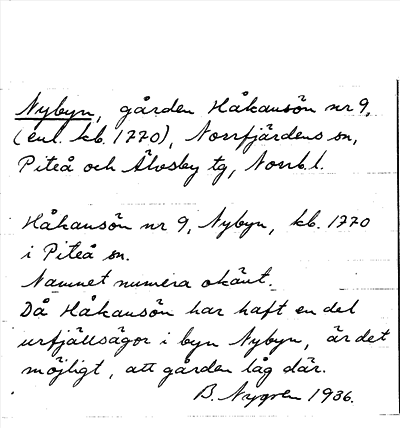 Nybyn, gården Håkansön nr 9,
(enl. kb. 1770), Norrfjärdens sn,
Piteå och Älvsby tg, Norrb. l.
Håkansön nr 9, Nybyn, kb. 1770
i Piteå sn.
Namnet numera okänt.
Då Håkansön har haft en del
urfjällsägor i byn Nybyn, är det
möjligt, att gården låg där.
B. Nygren 1936.